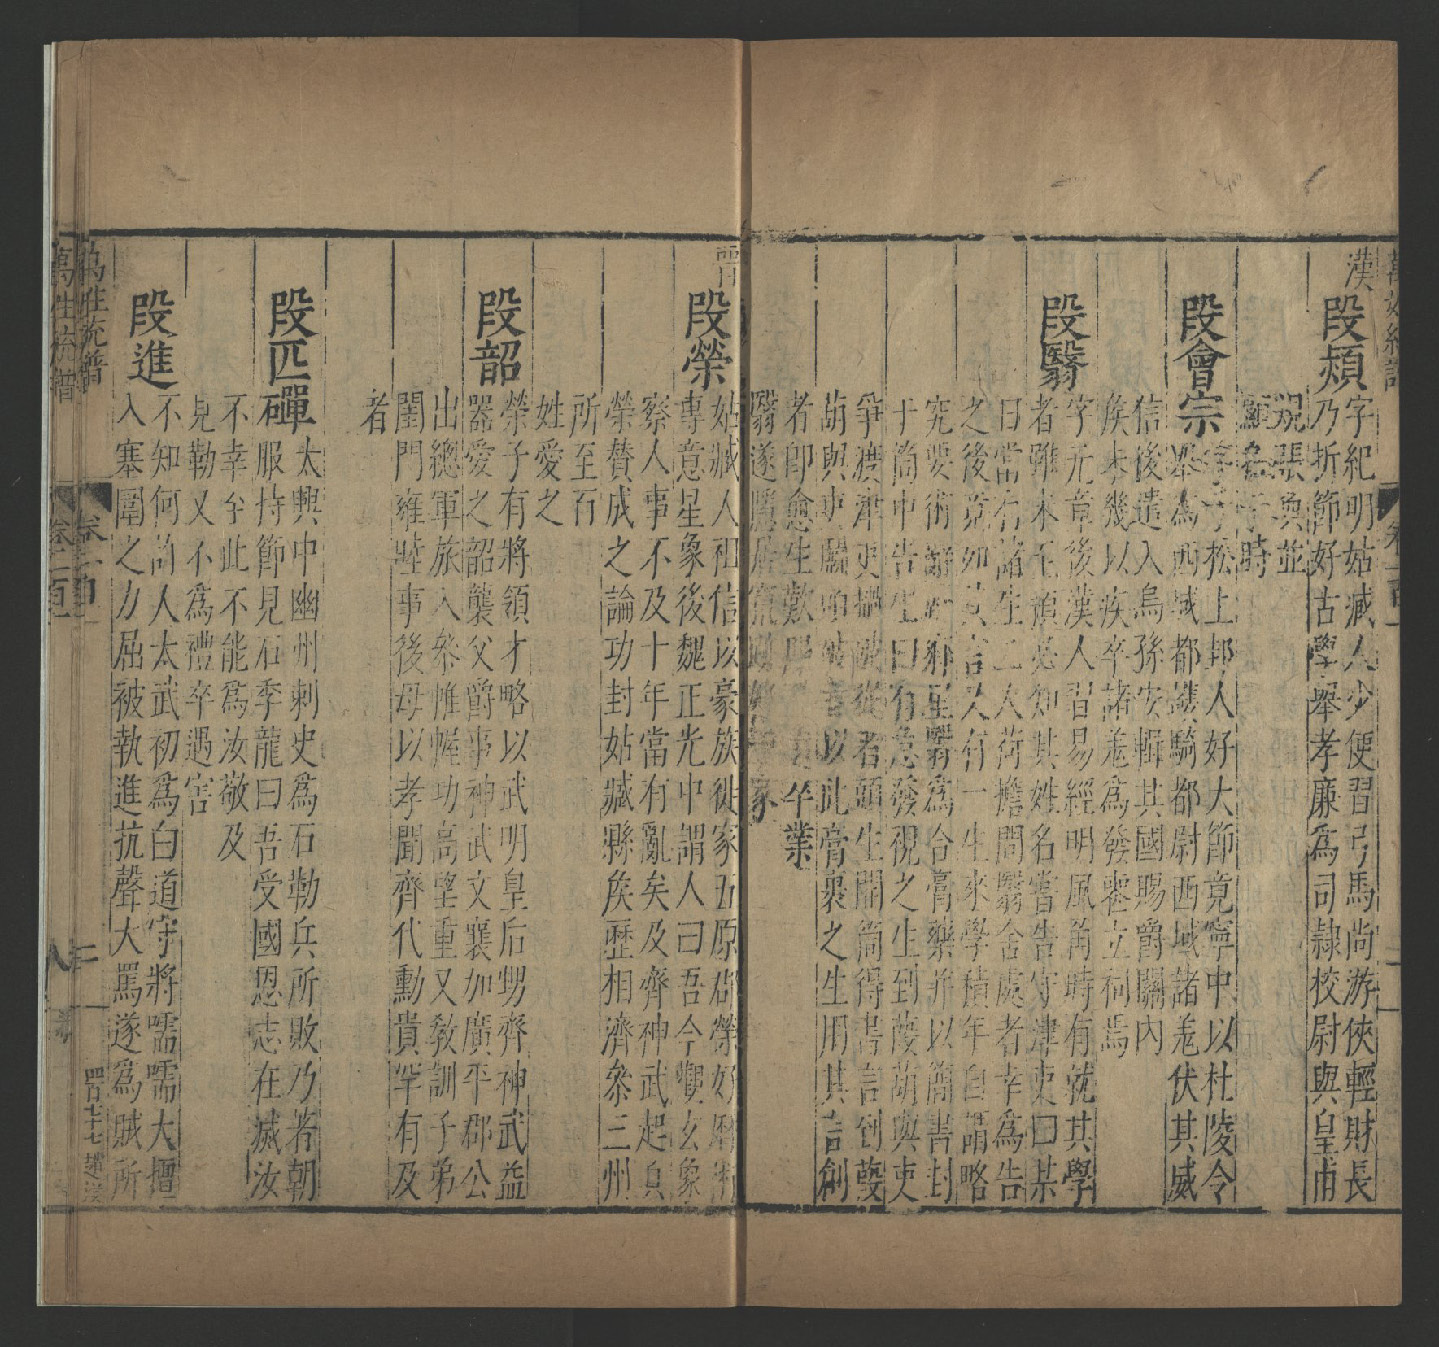 漢
段熲
字紀明姑臧人少便習弓馬尚游俠輕財長
乃折節好古學舉孝廉爲司隷校尉與皇甫
規張奐並
顯名于時
段會宗
字子松上邽人好大節竟寧中以杜陵令
舉爲西域都護騎都尉西域諸羗伏其威
信後遣入烏孫安輯其國賜爵關內
矦未幾以疾卒諸羗爲發喪立祠焉
段翳
字元章後漢人習易經明風角時有就其學
者雖未至預必知其姓名嘗告守津吏曰某
日當有諸生二人荷擔問翳舍處者幸爲告
之後竟如其言又有一生來學積年自謂略
究要術辭歸鄉里翳爲合膏藥并以簡書封
于筒中告生曰有急發視之生到葭萌與吏
爭渡津吏撾破從者頭生開筒得書言到葭
萌與吏鬭頭破者以此膏裹之生用其言創
者即愈生歎服 卒業
翳遂隱居竄 家
晉
段榮
姑臧人祖信以豪族徙家五原郡榮好曆術
專意星象後魏正光中謂人曰吾今覩玄象
察人事不及十年當有亂矣及齊神武起
榮賛成之論功封姑臧縣矦歷相濟叅三州
所至百
姓愛之
段韶
榮子有將領才略以武明皇后甥齊神武益
器愛之韶襲父爵事神武文襄加廣平郡公
出總軍旅入叅帷幄功高望重又敎訓子弟
閨門雍睦事後母以孝聞齊代勳貴罕有及
者
段匹磾
太興中幽州刺史爲石勒兵所敗乃着朝
服持節見石季龍曰吾受國恩志在滅汝
不幸至此不能爲汝敬及
見勒又不爲禮卒遇害
段進
不知何許人太武初爲白道守將嚅嚅大檀
入寨圍之力屈被執進抗聲大罵遂爲賊所
萬姓統譜
卷一百
二
四百七十七